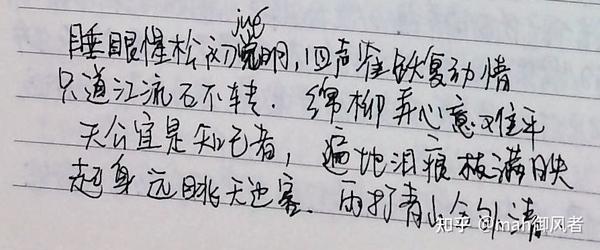 jué
睡眼惺松初觉明,四声雀跃复动情
只道江流石不转. 绵柳弄心意难平
天公宜是知己者,遍地泪痕板满映
起身远眺天边塞.雨打青山分外清
知乎 @man御风者